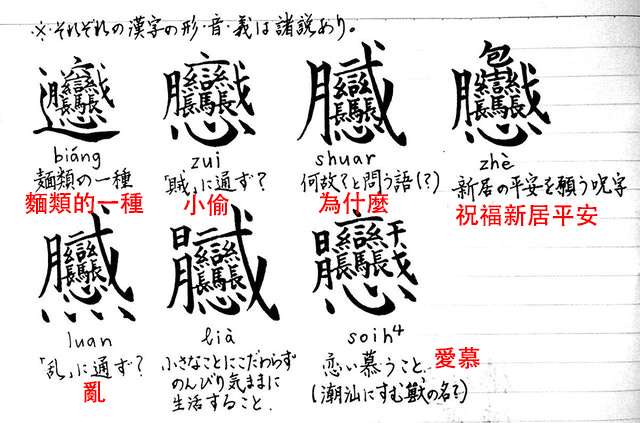 ※それぞれの漢字の形・音・義は諸説あり。
𰻞
biáng
麺類の一種
麵類的一種
zui
「賊」に通ず?
小偷
shuar
何故?と問う語(?)
為什麼
zhè
新居の平安を願う呪字
祝福新居平安
luan
「乱」に通ず?
亂
lià
小さなことにこだわらず
のんびり気ままに
生活すること.
soih4
恋い慕うこと.
愛慕
(潮汕にすむ獣の名?)